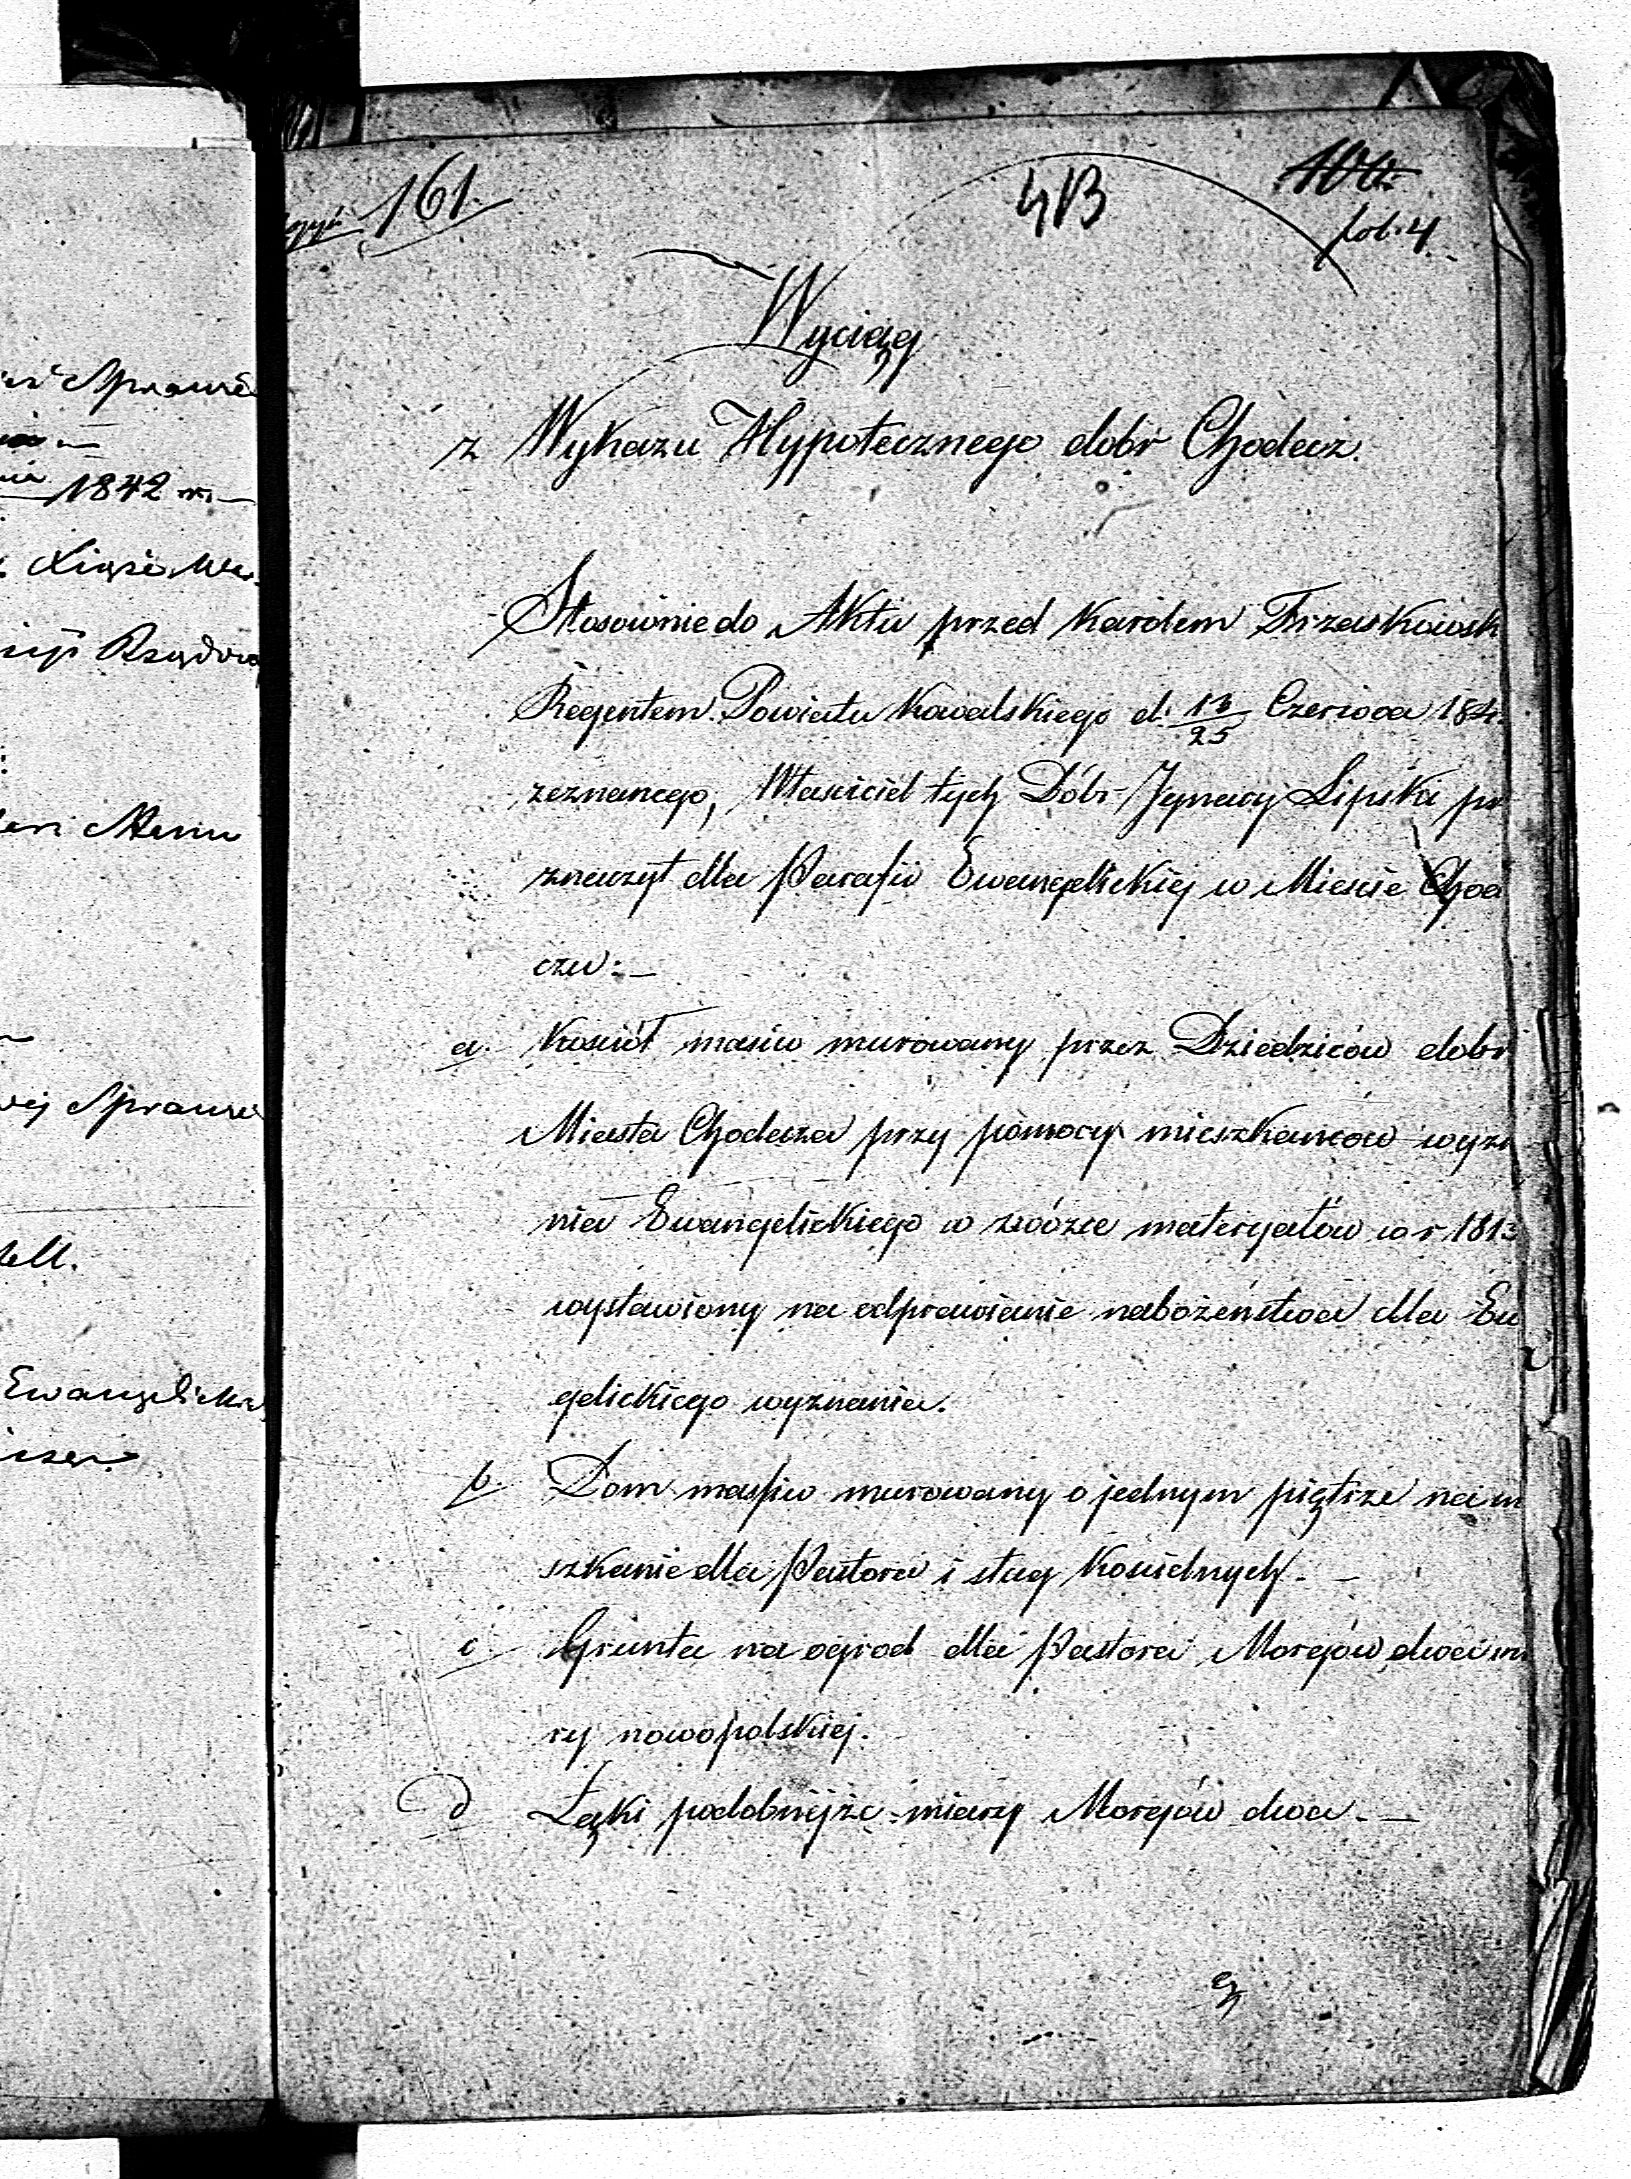 161.
413
fol. 4
Wyciąg
z Wykazu Hypotecznego dobr Chodecz.
Stosownie do Aktu przed Karolem Trzaskowsk
Regentem Powiatu Kowalskiego d. 13/25 Czerwca 184
zeznanego, Właściciel tych Dóbr Jgnacy Lipski pr
znaczył dla Parafii Ewangelickiej w Mieście Chod
czu:—
a. Kościół masiw murowany przez Dziedziców dobr
Miasta Chodecza przy pomocy mieszkancow wyzn
nia Ewangelickiego w zwózce materyałów w r 181
wystawiony na odprawianie nabożeństwa dla Ew
gelickiego wyznania.
b. Dom massiw murowany o jednym piętrze na m
szkanie dla Pastora i sług Kościelnych.—
c. Grunta na ogrod dla Pastora Morgów dwa m
ry nowopolskiej.
d Łąki podobnejże miary Morgów dwa.—
1842 r.
Rządow
Sprawie
Ewangelicka